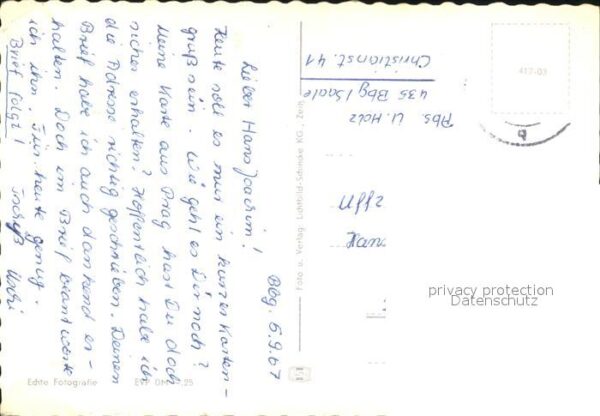 Bbg. 5.9.67
Lieber Hans Joachim!
Heute soll es nur ein kurzer Karten-
gruß sein. Wie geht es Dir noch?
Meine Karte aus Prag hast Du doch
sicher erhalten? Hoffentlich habe ich
die Adresse richtig geschrieben. Deinen
Brief habe ich auch dankend er-
halten. Doch im Brief beantworte
ich ihn. Für heute genug.
Brief folgt!
Abs. U. Holz
435 Bbg/Saale
Christianst. 41
417-03
Foto u. Verlag Lichtbild-Schincke KG., Zeitz
privacy protection
Datenschutz
Echte Fotografie
EVP DM 0,25